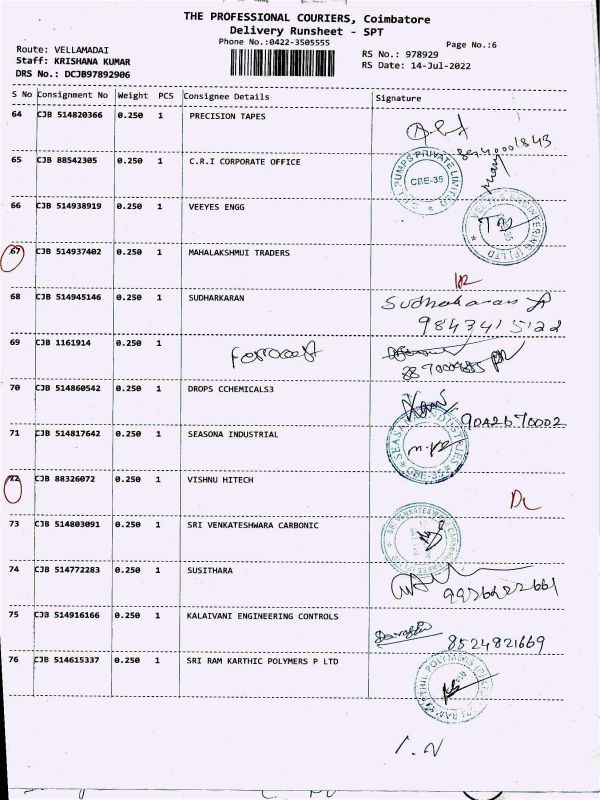 THE PROFESSIONAL COURIERS, Coimbatore
Delivery Runsheet - SPT
Phone No.:0422-3505555
Page No.:6
Route: VELLAMADAI
Staff: KRISHANA KUMAR
DRS No.: DCJB97892906
RS No.: 978929
RS Date: 14-Jul-2022
S No Consignment No Weight PCS Consignee Details Signature
64 CJB 514820366 0.250 1 PRECISION TAPES
65 CJB 88542305 0.250 1 C.R.I CORPORATE OFFICE
PUMPS PRIVATE LIMITED CBE-35
66 CJB 514938919 0.250 1 VEEYES ENGG
67 CJB 514937402 0.250 1 MAHALAKSHMUI TRADERS
68 CJB 514945146 0.250 1 SUDHARKARAN Sudhakaran
9843415122
69 CJB 1161914 0.250 1
70 CJB 514860542 0.250 1 DROPS CCHEMICALS3
71 CJB 514817642 0.250 1 SEASONA INDUSTRIAL
CBE-35
72 CJB 88326072 0.250 1 VISHNU HITECH
DL
73 CJB 514803091 0.250 1 SRI VENKATESHWARA CARBONIC
74 CJB 514772283 0.250 1 SUSITHARA
75 CJB 514916166 0.250 1 KALAIVANI ENGINEERING CONTROLS
8524821669
76 CJB 514615337 0.250 1 SRI RAM KARTHIC POLYMERS P LTD